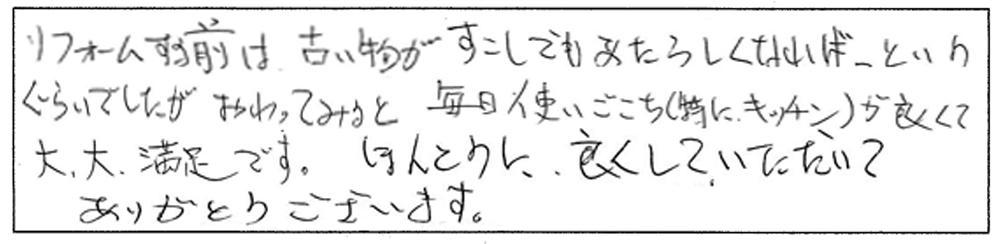 リフォームする前は、古い物がすこしでもあたらしくなれば–という
ぐらいでしたが おわってみると 毎日使いごこち(特に、キッチン)が良くて
大、大、満足です。 ほんとうに、良くしていただいて
ありがとうございます。